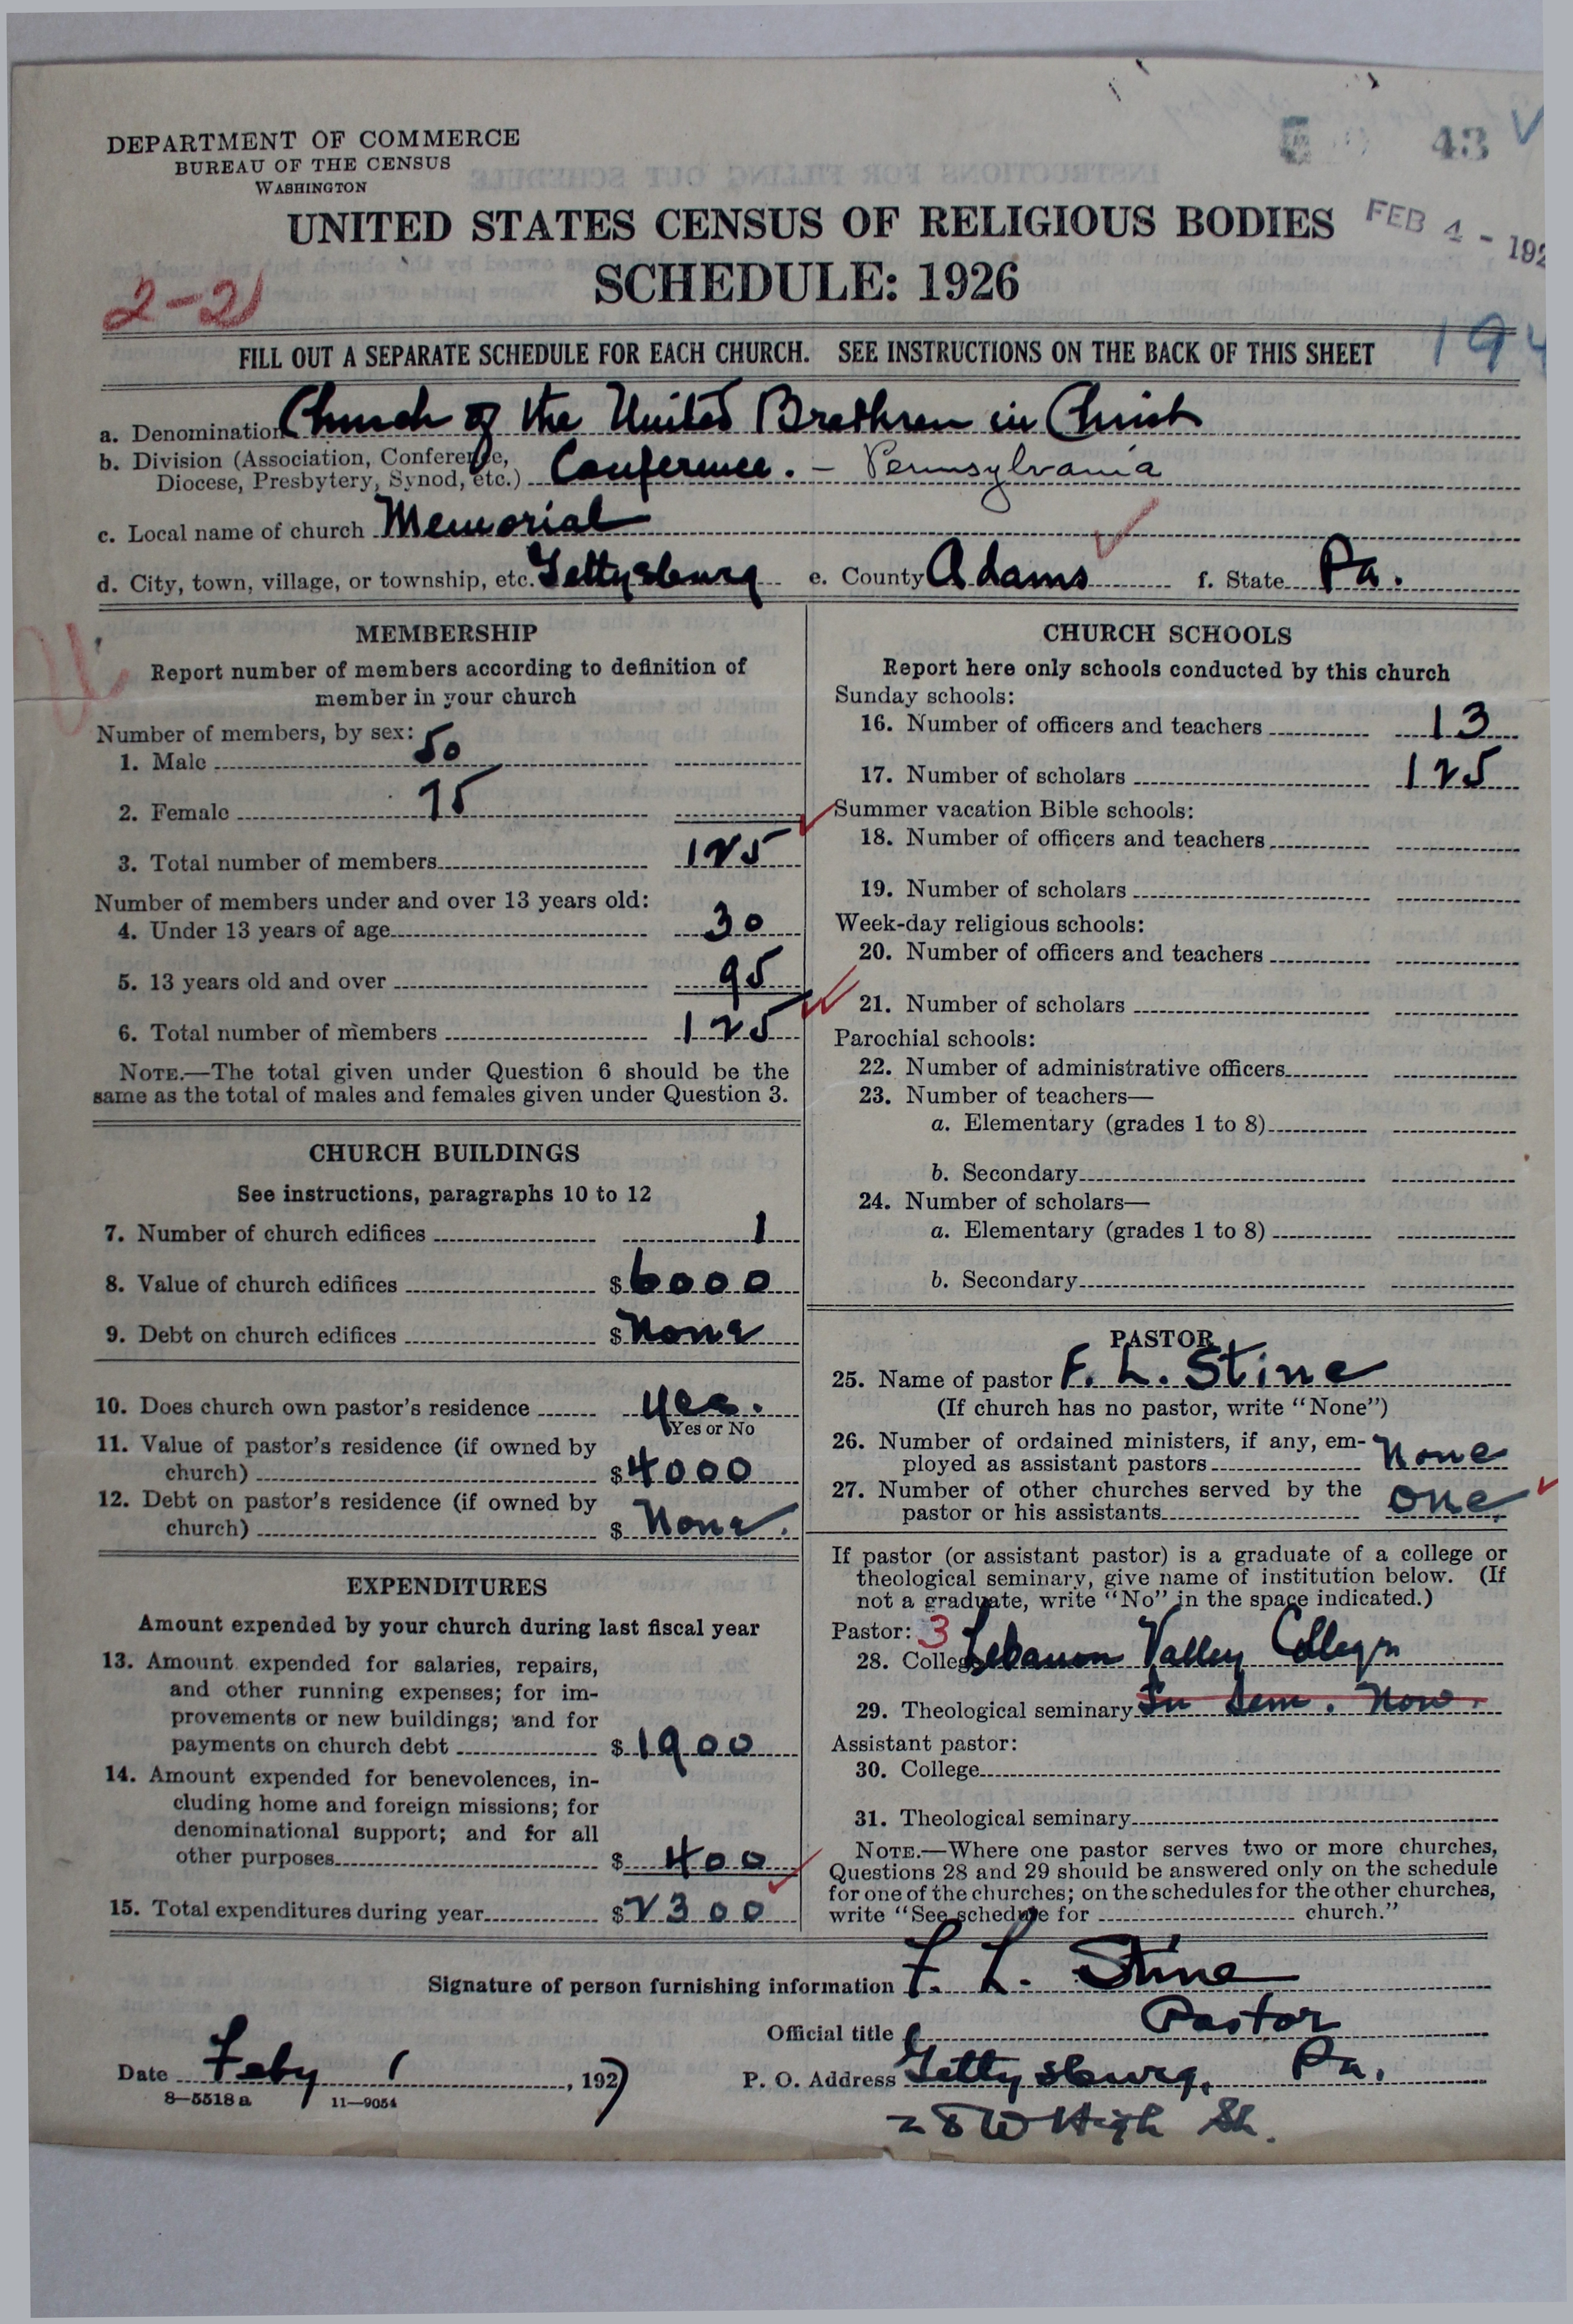 43
DEPARTMENT OF COMMERCE
BUREAU OF THE CENSUS
WASHINGTON
UNITED STATES CENSUS OF RELIGIOUS BODIES
FEB 4 - 192
SCHEDULE: 1926
2-21
194
FILL OUT A SEPARATE SCHEDULE FOR EACH CHURCH. SEE INSTRUCTIONS ON THE BACK OF THIS SHEET
a. Denomination Church of the United Brethren in Christ
b. Division (Association, Conference,
Diocese, Presbytery, Synod, etc.) Conference. - Pennsylvania
c. Local name of church Memorial
d. City, town, village, or township, etc. Gettysburg e. County Adams f. State Pa.
MEMBERSHIP
Report number of members according to definition of
member in your church
Number of members, by sex:
1. Male 50
2. Female 75
3. Total number of members 125
Number of members under and over 13 years old:
4. Under 13 years of age 30
5. 13 years old and over 95
6. Total number of members 125
NOTE.—The total given under Question 6 should be the
same as the total of males and females given under Question 3.
CHURCH BUILDINGS
See instructions, paragraphs 10 to 12
7. Number of church edifices 1
8. Value of church edifices $6000
9. Debt on church edifices $None
10. Does church own pastor's residence yes.
Yes or No
11. Value of pastor's residence (if owned by
church) $4000
12. Debt on pastor's residence (if owned by
church) $None.
EXPENDITURES
Amount expended by your church during last fiscal year
13. Amount expended for salaries, repairs,
and other running expenses; for im-
provements or new buildings; and for
payments on church debt $1900
14. Amount expended for benevolences, in-
cluding home and foreign missions; for
denominational support; and for all
other purposes $400
15. Total expenditures during year $2300
CHURCH SCHOOLS
Report here only schools conducted by this church
Sunday schools:
16. Number of officers and teachers 13
17. Number of scholars 125
Summer vacation Bible schools:
18. Number of officers and teachers
19. Number of scholars
Week-day religious schools:
20. Number of officers and teachers
21. Number of scholars
Parochial schools:
22. Number of administrative officers
23. Number of teachers—
a. Elementary (grades 1 to 8)
b. Secondary
24. Number of scholars—
a. Elementary (grades 1 to 8)
b. Secondary
PASTOR
25. Name of pastor F. L. Stine
(If church has no pastor, write "None")
26. Number of ordained ministers, if any, em-
ployed as assistant pastors None
27. Number of other churches served by the
pastor or his assistants one
If pastor (or assistant pastor) is a graduate of a college or
theological seminary, give name of institution below. (If
not a graduate, write "No" in the space indicated.)
Pastor: 3
28. College Lebanon Valley College
29. Theological seminary In Sem. Now.
Assistant pastor:
30. College
31. Theological seminary
NOTE.—Where one pastor serves two or more churches,
Questions 28 and 29 should be answered only on the schedule
for one of the churches; on the schedules for the other churches,
write "See schedule for church."
Signature of person furnishing information F. L. Stine
Official title Pastor
Date Feby 1, 1927
P. O. Address Gettysburg, Pa.
8—5518 a 11—9054
28 W High St.